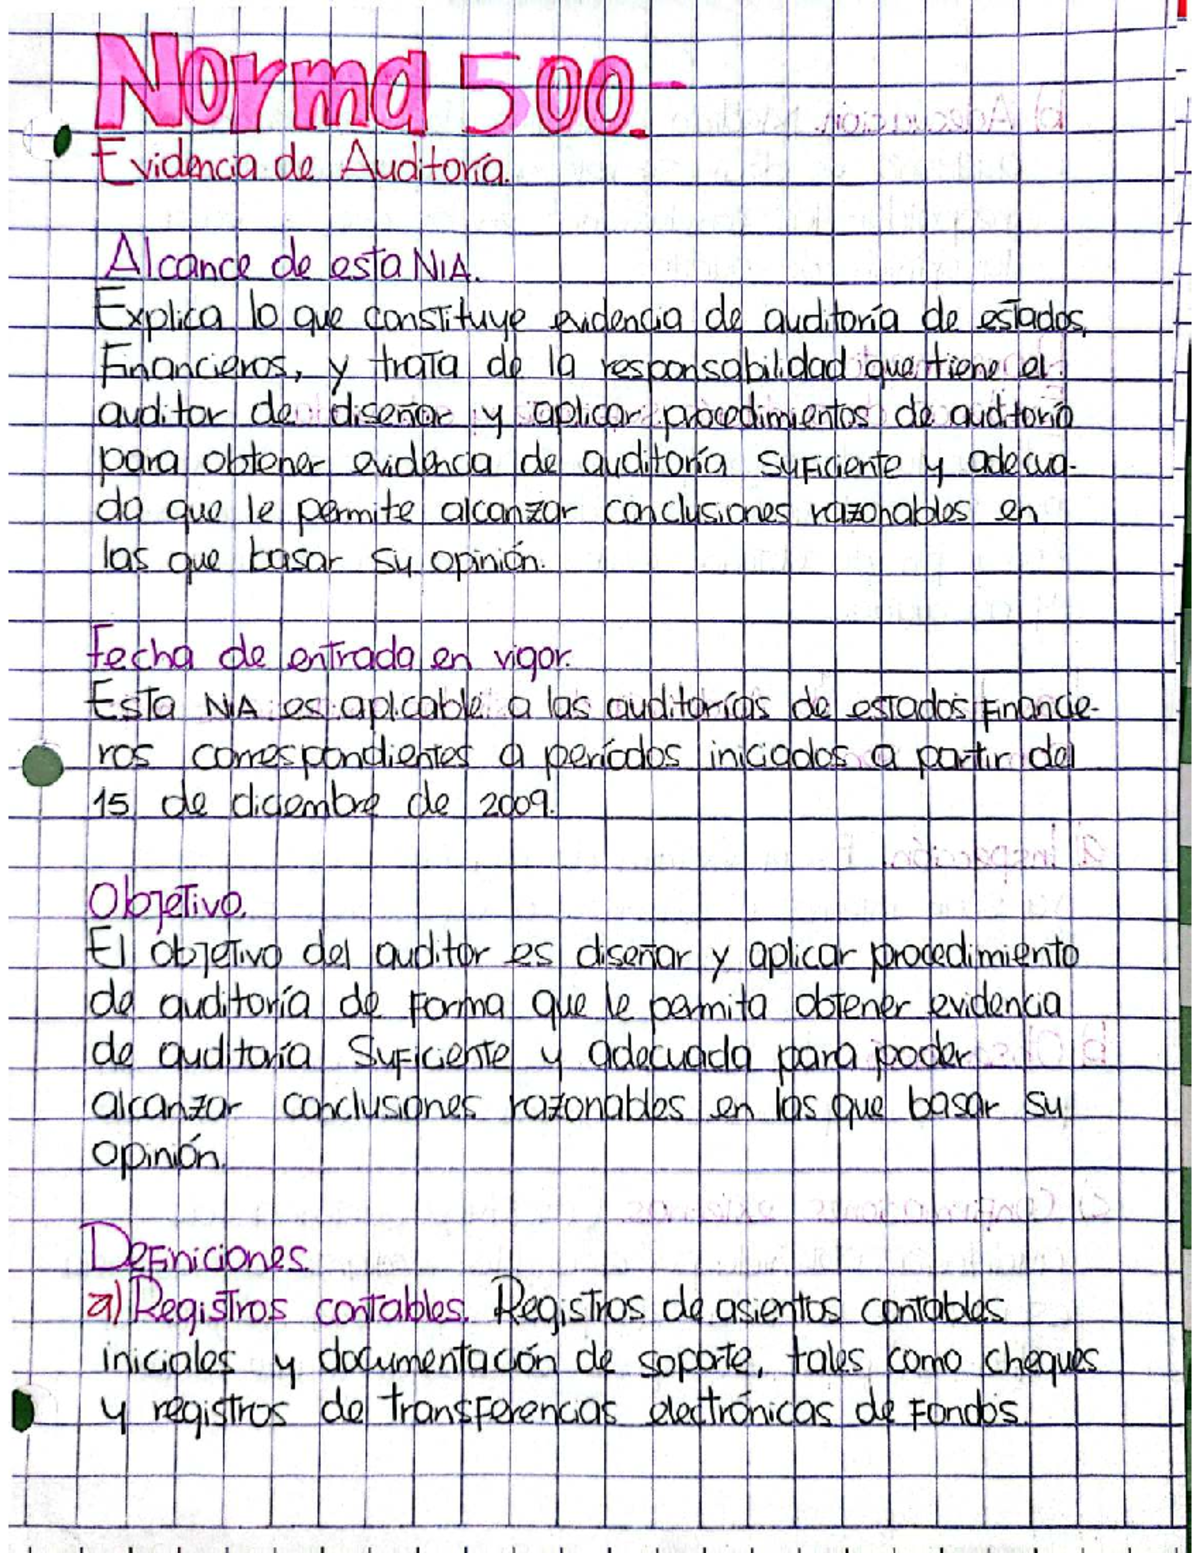 Norma 500.-
Evidencia de Auditoría.
Alcance de esta NIA.
Explica lo que constituye evidencia de auditoría de estados
Financieros, y trata de la responsabilidad que tiene el
auditor de diseñar y aplicar procedimientos de auditoría
para obtener evidencia de auditoría suficiente y adecua-
da que le permite alcanzar conclusiones razonables en
las que basar su opinión.
Fecha de entrada en vigor.
Esta NIA es aplicable a las auditorías de estados financie-
ros correspondientes a períodos iniciados a partir del
15 de diciembre de 2009.
Objetivo.
El objetivo del auditor es diseñar y aplicar procedimiento
de auditoría de forma que le permita obtener evidencia
de auditoría suficiente y adecuada para poder
alcanzar conclusiones razonables en las que basar su
opinión.
Definiciones.
a) Registros contables. Registros de asientos contables
iniciales y documentación de soporte, tales como cheques
y registros de transferencias electrónicas de fondos.